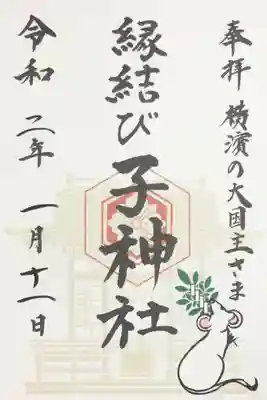 奉拝 横濱の大国主さま
縁結び 子神社
令和二年 一月十一日